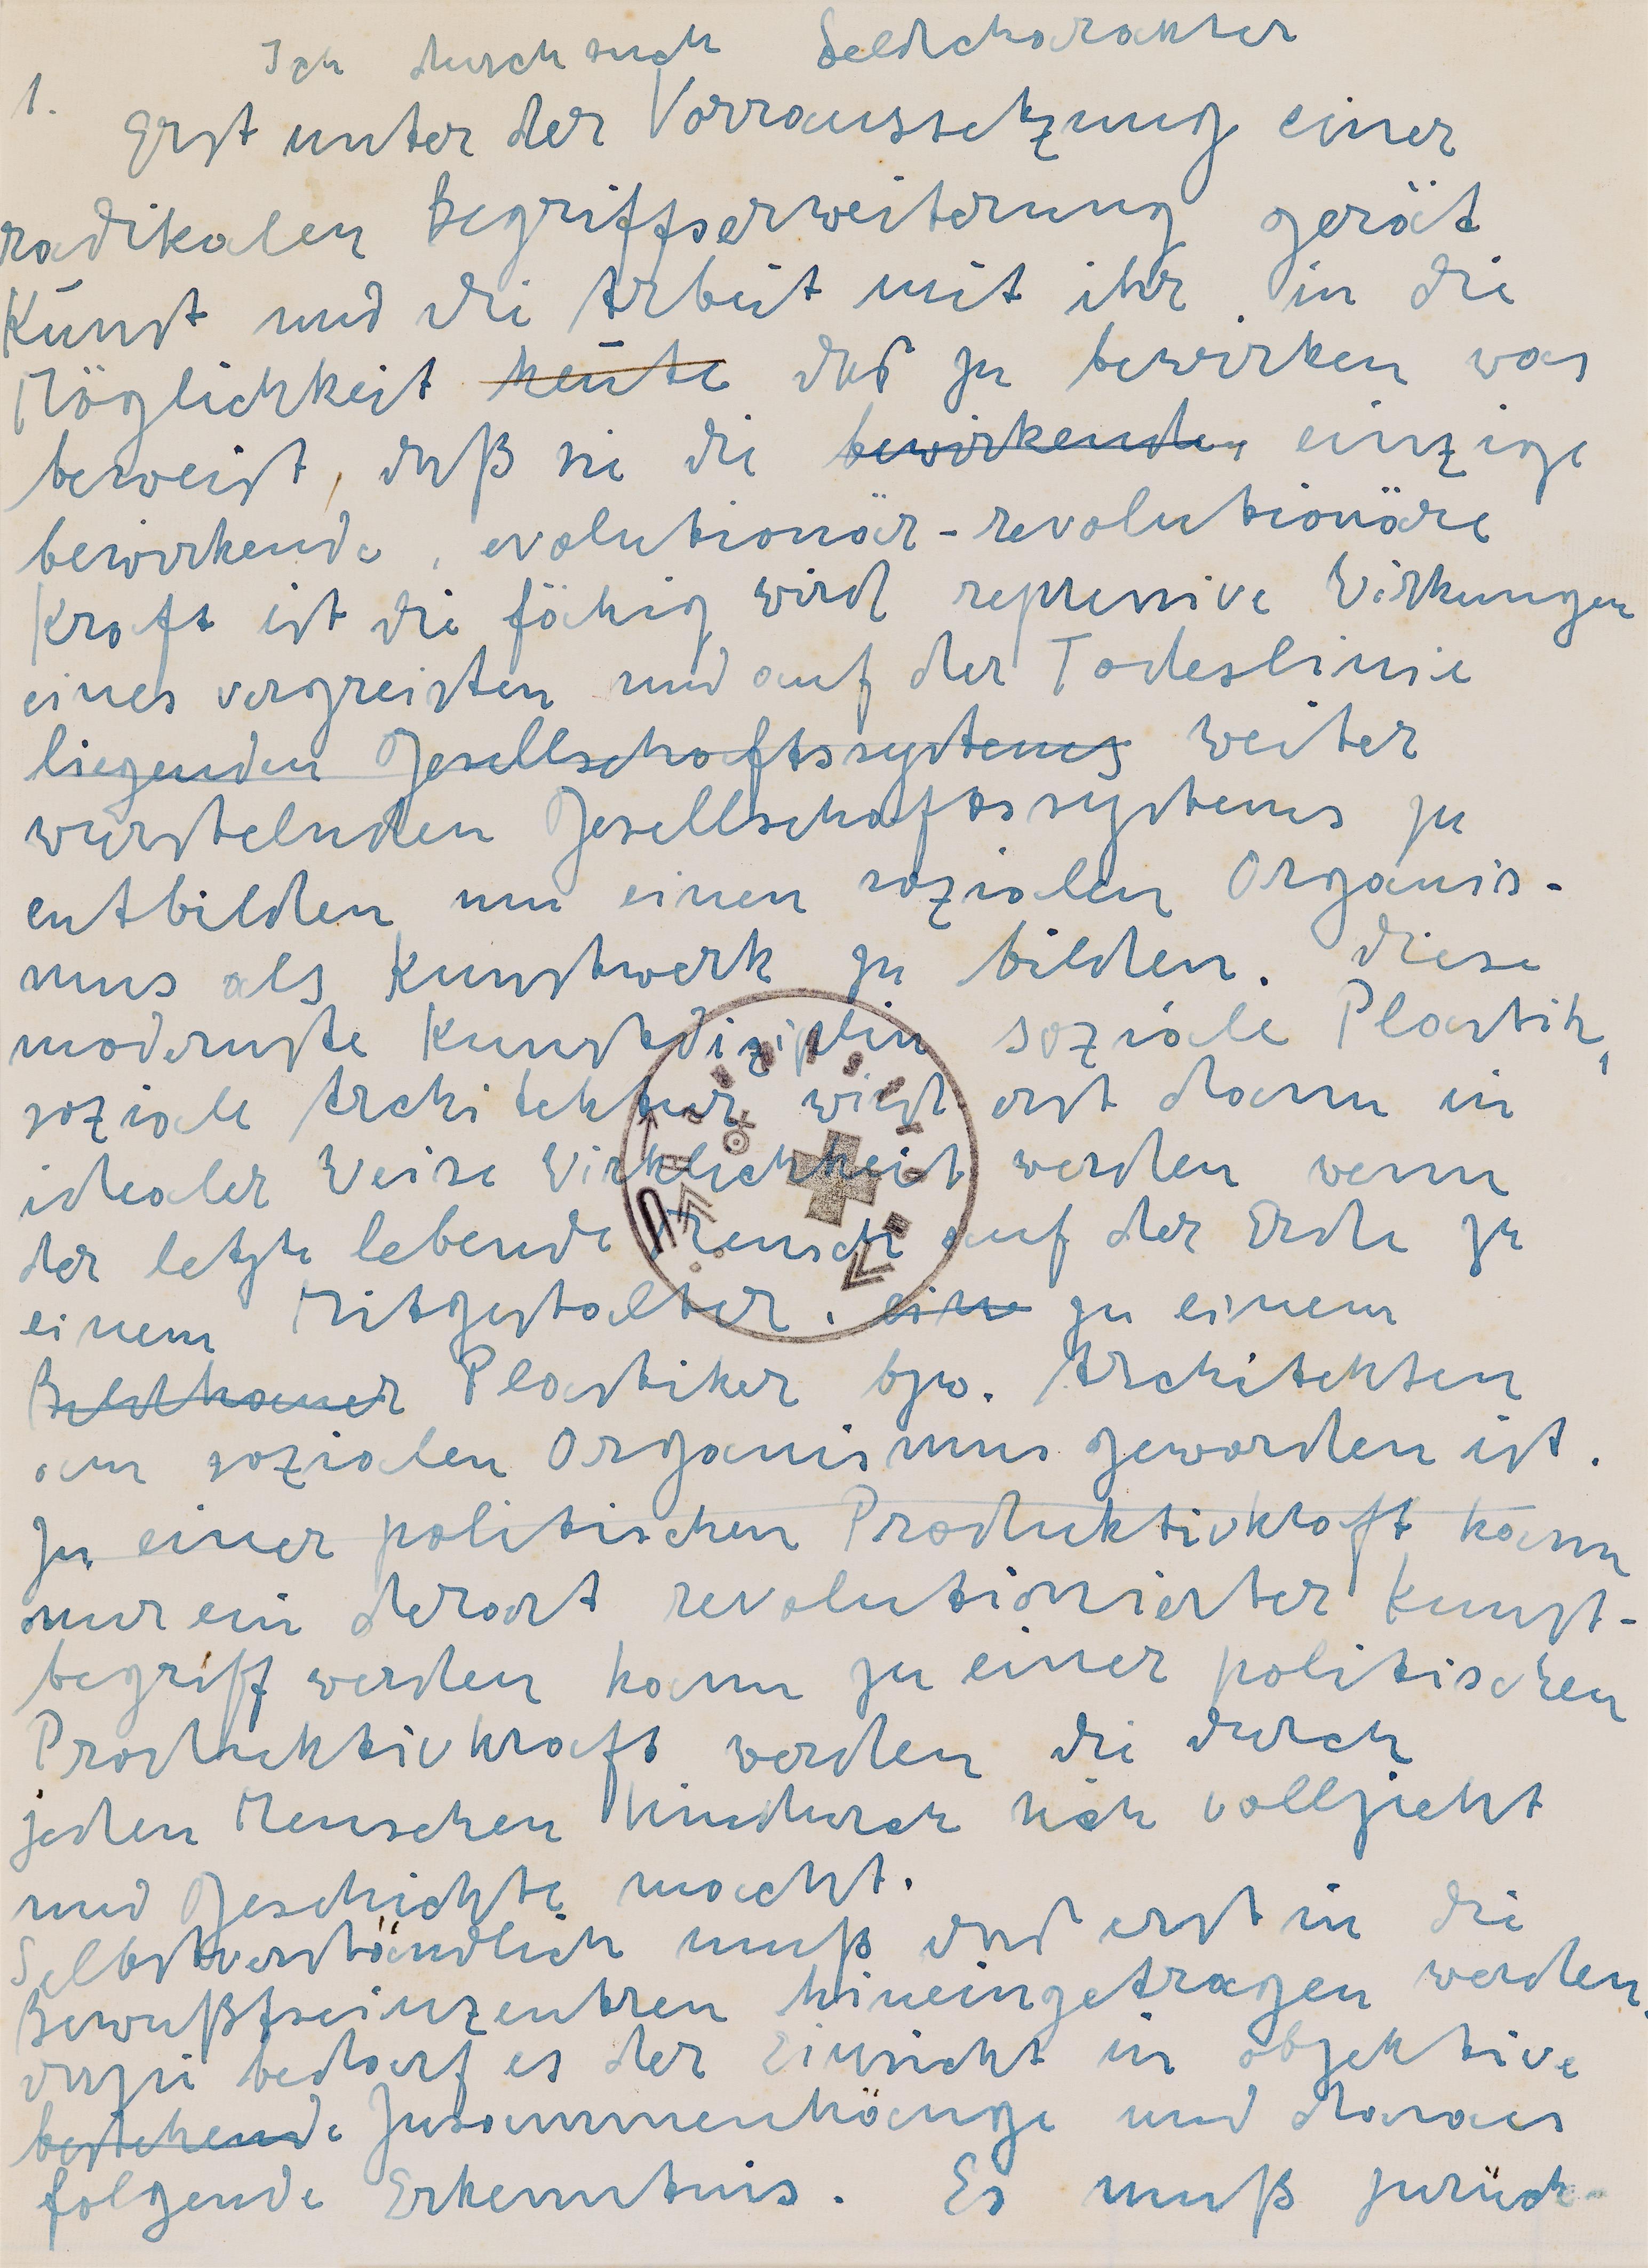 Ich durch such Geldcharakter
1. Erst unter der Vorraussetzung einer
radikalen Begriffserweiterung gerät
Kunst und die Arbeit mit ihr in die
Möglichkeit heute das zu bewirken was
beweist, daß sie die bewirkende, einzige
bewirkende, evolutionär-revolutionäre
Kraft ist die fähig wird repressive Wirkungen
eines vergreisten und auf der Todeslinie
liegenden Gesellschaftssystems weiter
wurstelnden Gesellschaftssystems zu
entbilden um einen sozialen Organis-
mus als Kunstwerk zu bilden. Diese
modernste Kunstdiziplin soziale Plastik,
soziale Architektur wird erst dann in
idealer Weise Wirklichkeit werden wenn
der letzte lebende Mensch auf der Erde zu
einem Mitgestalter, ein zu einem
Bildhauer Plastiker bzw. Architekten
am sozialen Organismus geworden ist.
Zu einer politischen Produktivkraft kann
nur ein derart revolutionierter Kunst-
begriff werden kann zu einer politischen
Produktivkraft werden die durch
jeden Menschen hindurch sich vollzieht
und Geschichte macht.
Selbstverständlich muß das erst in die
Bewußtseinzentren hineingetragen werden,
dazu bedarf es der Einsicht in objektive
bestehende Zusammenhänge und daraus
folgende Erkenntnis. Es muß zurück-